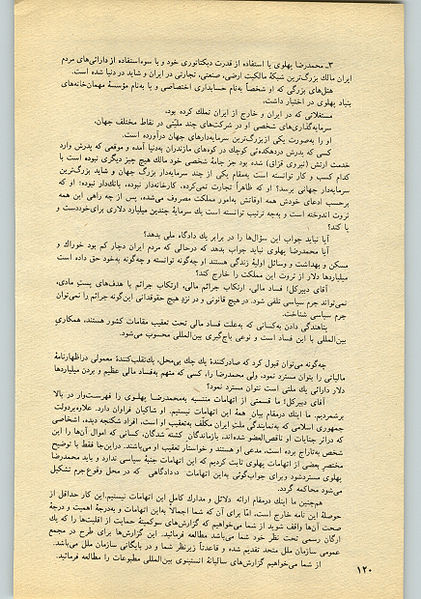 ۳ــ محمدرضا پهلوی با استفاده از قدرت دیکتاتوری خود و با سوءاستفاده از دارائی‌های مردم
ایران مالک بزرگ‌ترین شبکهٔ مالکیت ارضی، صنعتی، تجارتی در ایران و شاید در دنیا شده است.
هتل‌های بزرگی که او شخصاً به‌نام حسابداری اختصاصی و یا به‌نام مؤسسهٔ مهمان‌خانه‌های
بنیاد پهلوی در اختیار داشت،
مستغلاتی که در ایران و خارج از ایران تملک کرده بود،
سرمایه‌گذاری‌های شخصی او در شرکت‌های چند ملیتی در نقاط مختلف جهان،
او را به‌صورت یکی ازبزرگ‌ترین سرمایه‌دارهای جهان درآورده است.
کسی که پدرش دردهکده‌ئی کوچک در کوه‌های مازندران به‌دنیا آمده و موقعی که پدرش وارد
خدمت ارتش (نیروی قزاق) شده بود جز جامهٔ شخصی خود مالک هیچ چیز دیگری نبوده است با
کدام کسب و کار توانسته است به‌مقام یکی از چند سرمایه‌دار بزرگ جهان و شاید بزرگ‌ترین
سرمایه‌دار جهانی برسد؟ او که ظاهراً تجارت نمی‌کرده، کارخانه‌دار نبوده، بانک‌دار نبوده؛ او که
برحسب ادعای خودش همه اوقاتش به‌امور مملکت مصروف می‌شده، پس از چه راهی این همه
ثروت اندوخته است و به‌چه ترتیب توانسته است یک سرمایهٔ چندین میلیارد دلاری برای‌خود‌دست و
پا کند؟
آیا نباید جواب این سؤال‌ها را در برابر یک دادگاه ملی بدهد؟
آیا محمدرضا پهلوی نباید جواب بدهد که درحالی که مردم ایران دچار کم بود خوراک و
مسکن و بهداشت و وسائل اولیهٔ زندگی هستند او چه‌گونه توانسته و چه‌گونه به‌خود حق داده است
میلیاردها دلار از ثروت این مملکت را خارج کند؟
آقای دبیرکل؛ فساد مالی، ارتکاب جرائم مالی، ارتکاب جرائم با هدف‌های پست مادی،
نمی‌تواند جرم سیاسی تلقی شود. در هیچ قانونی و در نزد هیچ حقوقدانی این‌گونه جرائم را نمی‌توان
جرم سیاسی شناخت.
پناهندگی دادن به‌کسانی که به‌علت فساد مالی تحت تعقیب مقامات کشور هستند، همکاری
بین‌المللی با این فساد است و نوعی باج‌گیری بین‌المللی محسوب می‌شود.
چه‌گونه می‌توان قبول کرد که صادرکنندهٔ یک چک بی‌محل، یک‌تقلب‌کنندهٔ معمولی دراظهارنامهٔ
مالیاتی را بتوان مسترد نمود، ولی محمدرضا را، کسی که متهم به‌فساد مالی عظیم و بردن میلیاردها
دلار دارائی یک ملتی است نتوان مسترد نمود؟
آقای دبیرکل؛ ما قسمتی از اتهامات منتسبه به‌محمدرضا پهلوی را فهرست‌وار در بالا
برشمردیم. ما اینک درمقام بیان همهٔ این اتهامات نیستیم. او شاکیان فراوان دارد. علاوه‌بردولت
جمهوری اسلامی که به‌نمایندگی ملتِ ایران مکلف به‌تعقیب او است، افراد شکنجه دیده، اشخاصی
که دراثر جنایات او ناقص‌العضو شده‌اند، بازماندگان کشته شدگان، کسانی که اموال آن‌ها را این
شخص به‌تاراج برده است، مدعی او هستند و خواستار تعقیب او می‌باشند. دراین‌جا فقط با توضیح
مختصر بعضی از اتهامات پهلوی ثابت کردیم که این اتهامات جنبهٔ سیاسی ندارد و باید محمدرضا
پهلوی مستردشود وبرای جواب‌گوئی به‌این اتهامات دردادگاهی که در محل وقوع‌جرم تشکیل
می‌شود محاکمه گردد.
هم‌چنین ما اینک درمقام ارائه دلائل و مدارک کامل این اتهامات نیستیم.این کار حداقل از
حوصلهٔ این نامه خارج است، امّا برای آن که شما اجمالاً به‌این اتهامات و به‌درجهٔ اهمیت و درجهٔ
صحت آن‌ها واقف شوید از شما می‌خواهیم که گزارش‌های سوکمیتهٔ حمایت از اقلیت‌ها را که یک
ارگان رسمی تحت نظر خود شما می‌باشد مطالعه فرمائید. این گزارش‌ها برای طرح در مجمع
عمومی سازمان ملل متحد تقدیم شده و قاعدتاً زیرنظر شما و در بایگانی سازمان ملل می‌باشد.
از شما می‌خواهیم گزارش‌های سالیانهٔ انستیتوی بین‌المللی مطبوعات را مطالعه فرمائید.
۱۲۰